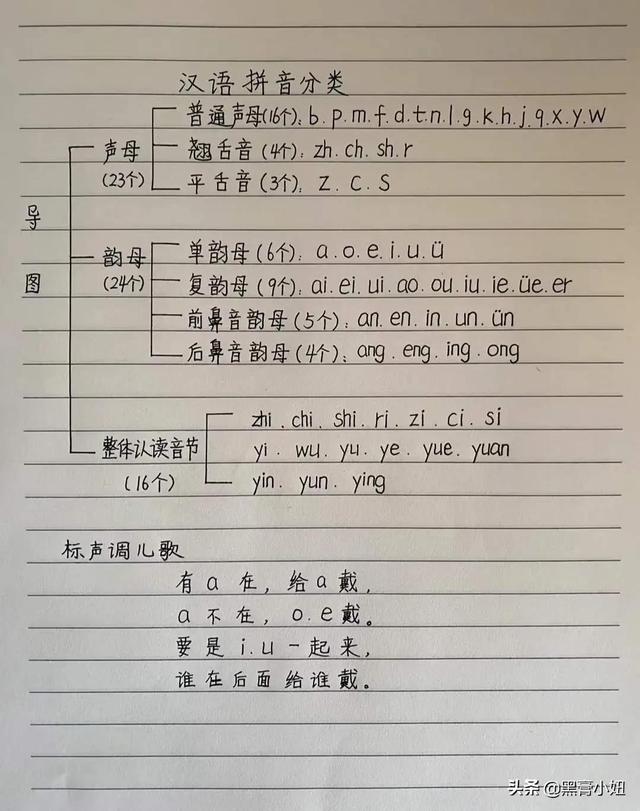 汉语拼音分类
普通声母(16个): b.p.m.f.d.t.n.l.g.k.h.j.q.x.y.w
声母
(23个)
翘舌音(4个): zh.ch.sh.r
平舌音(3个): z.c.s
导图
韵母
(24个)
单韵母(6个): a.o.e.i.u.ü
复韵母(9个): ai.ei.ui.ao.ou.iu.ie.üe.er
前鼻音韵母(5个): an.en.in.un.ün
后鼻音韵母(4个): ang.eng.ing.ong
整体认读音节
(16个)
zhi.chi.shi.ri.zi.ci.si
yi.wu.yu.ye.yue.yuan
yin.yun.ying
标声调儿歌
有a在,给a戴,
a不在,o.e戴。
要是i.u一起来,
谁在后面给谁戴。
头条@黑膏小妞